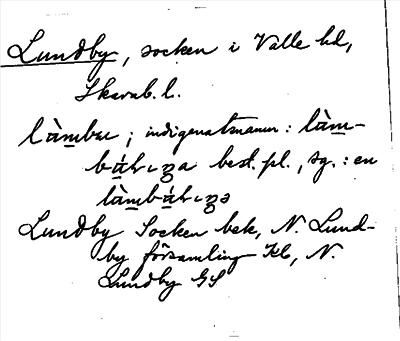 Lundby, socken i Valle hd,
Skarab. l.
làmbu; indigenatsnamn: làm-
báhıŋa best. pl., sg.: en
làmbáhıŋə
Lundby Socken bek, N. Lund-
by församling Kb, N.
Lundby GS